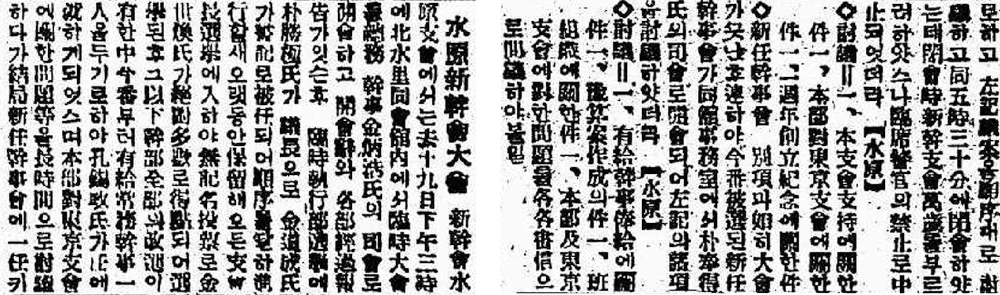 水原新幹會大會 新幹會水
原支會에서는去十九日下午三時
에北水里同會館內에서臨時大會
를總務幹事金炳浩氏의司會로
開會하고開會辭와各部經過報
告가잇슨후 臨時執行部選擧에
朴勝極氏가議長으로 金道成氏
가書記로被任되어順序를따라進
行할새오랫동안保留해오든支會
長選擧에入하야無記名投票로金
世煥氏가絕對多數로得點되어選
擧된후그以下幹部全部의改選이
有한中今番부터有給常務幹事一
人을두기로하야孔錫政氏가任에
就하게되엇스며本部對東京支會
에關한問題等을長時間으로討議
하다가結局新任幹事會에一任키
로하고左記議案을順序대로討
議하고同五時三十分에閉會하얏
는데閉會時新幹支會萬歲를부르
려하얏스나臨席警官의禁止로中
止되엇더라【水原】
◇討議=一、本支會支持에關한
件一、本部對東京支會에關한
件一、二週年創立紀念에關한件
◇新任幹事會 別項과如히大會
가긋난후連하야今番被選된新任
幹事會가同館事務室에서朴奉得
氏의司會로開會되어左記의諸項
을討議하얏더라【水原】
◇討議=一、有給幹事俸給에關
件一、豫算案作成의件一、班
組織에關한件一、本部及東京
支會에對한問題를各各書信으
로問議하야볼일